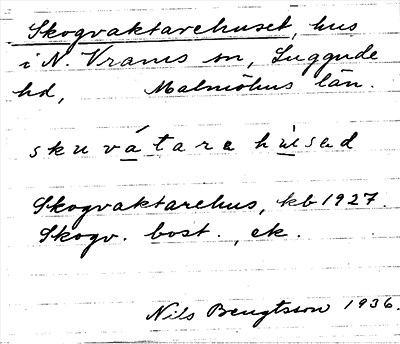 Skogvaktarehuset, hus
i N. Vrams sn, Luggude
hd, Malmöhus län.
skuvátarehùsed
Skogvaktarehus, kb 1927.
Skogv. bost., ek.
Nils Bengtsson 1936.